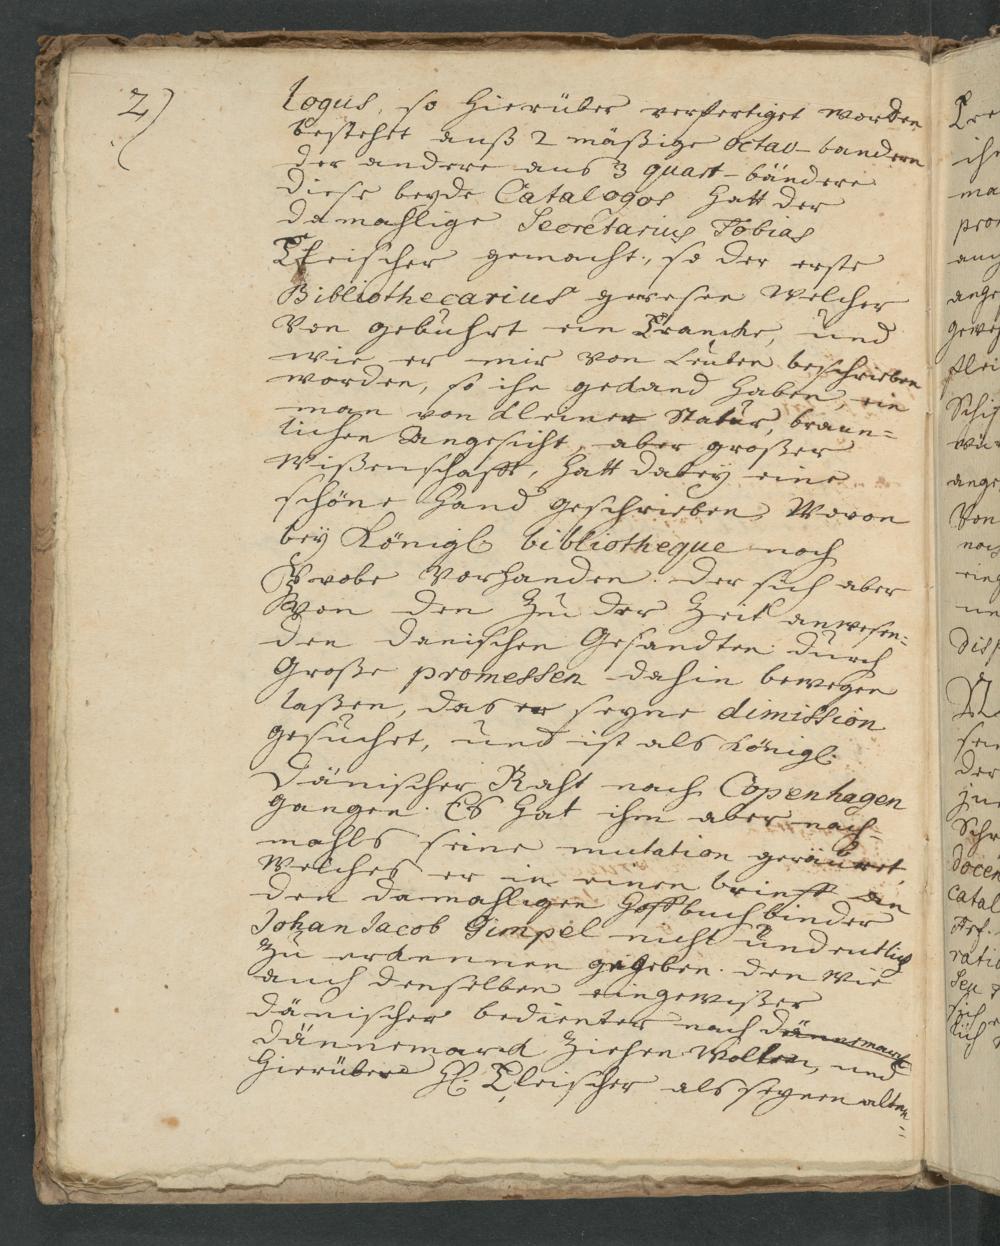 2)
logus, so hierüber verfertiget worden
bestehet auß 2 mäßige octav-bandern
der andere aus 3 quart-bändere
diese beyde Catalogos hatt der
damahlige Secretarius Tobias
Fleischer gemacht, so der erste
Bibliothecarius gewesen welcher
von gebührt ein Francke, und
wie er mir von leuten beschrieben
worden, so ihn gekand haben, ein
man von kleiner Statur, braun=
lichen Angesicht, aber großer
Wißenschafft, hatt dabey eine
schöne Hand geschrieben, Wovon
bey Königl bibliotheque noch
Probe vorhanden. der sich aber
von den zu der Zeit anwesen=
den dänischen Gesandten durch
Große promessen dahin bewegen
laßen, das er seyne dimission
gesuchet, und ist als Königl.
Dänischer Raht nach Copenhagen
gangen. Es hat ihm aber nach-
mahls seine mutation geräuet,
welches er in einen brieff an
den damahligen Hoffbuchbinder
Johan Jacob Gimpel nicht undeutlich
zu erkennen gegeben. den wie
auch denselben ein gewißer
dänischer bedienter nach dännemarck
dännemarck ziehen wollen, und
hierüber H. Fleischer als seynen alten=